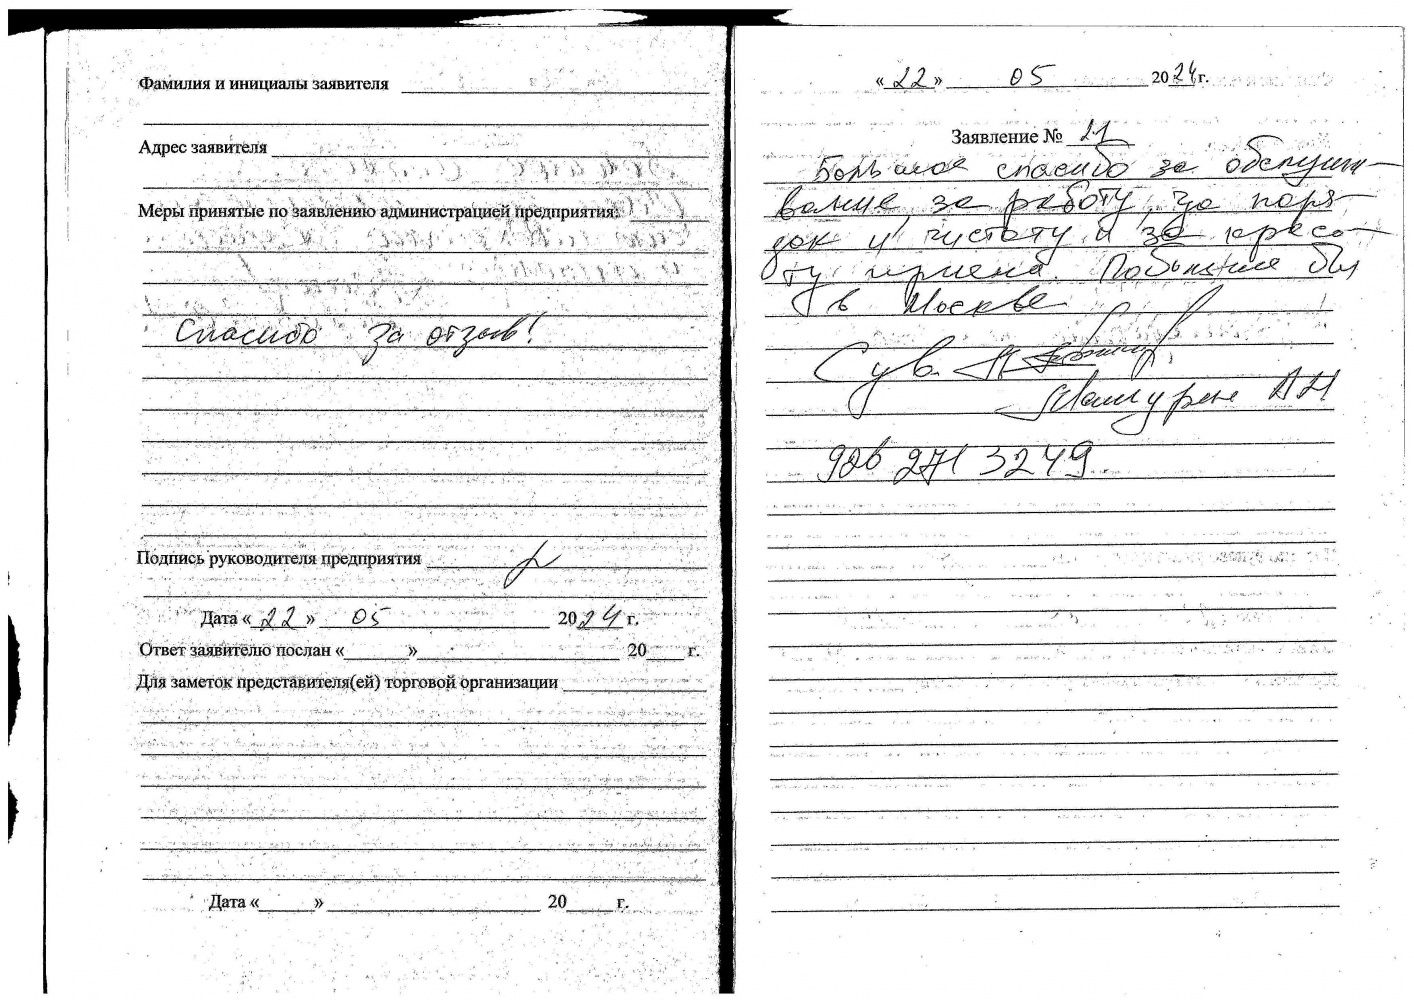 Фамилия и инициалы заявителя
Адрес заявителя
Меры принятые по заявлению администрацией предприятия:
Спасибо за отзыв!
Подпись руководителя предприятия
Дата «22» 05 2024 г.
Ответ заявителю послан « » 20 г.
Для заметок представителя(ей) торговой организации
Дата « » 20 г.
«22» 05 2024 г.
Заявление № 21
Большое спасибо за обслужи-
вание, за работу, за поря-
док и чистоту и за красо-
ту приема. Побольше бы
в Москве
С ув.
АН
926 271 3249